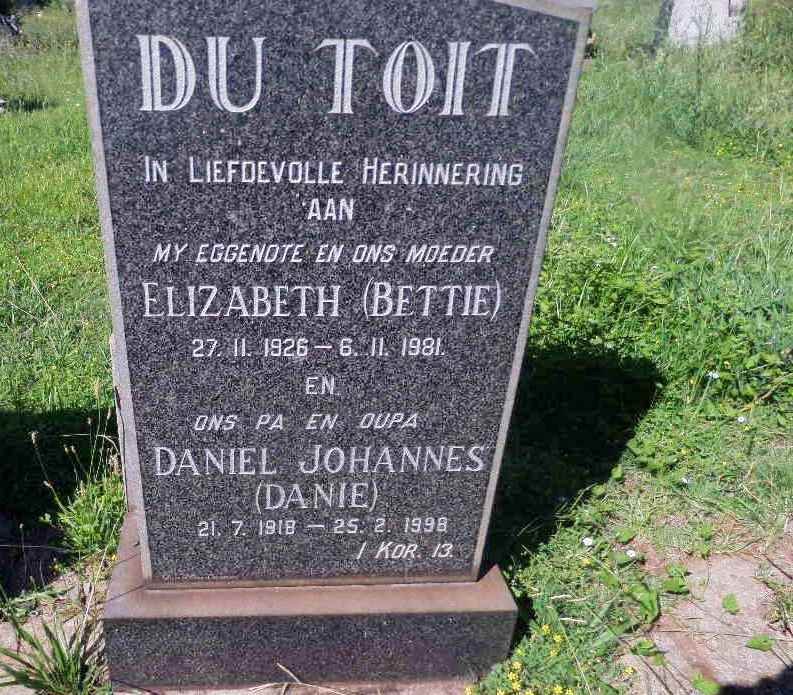 DU TOIT
IN LIEFDEVOLLE HERINNERING
AAN
MY EGGENOTE EN ONS MOEDER
ELIZABETH (BETTIE)
27. 11. 1926 – 6. 11. 1981.
EN
ONS PA EN OUPA
DANIEL JOHANNES
(DANIE)
21. 7. 1918 – 25. 2. 1998
I KOR. 13.